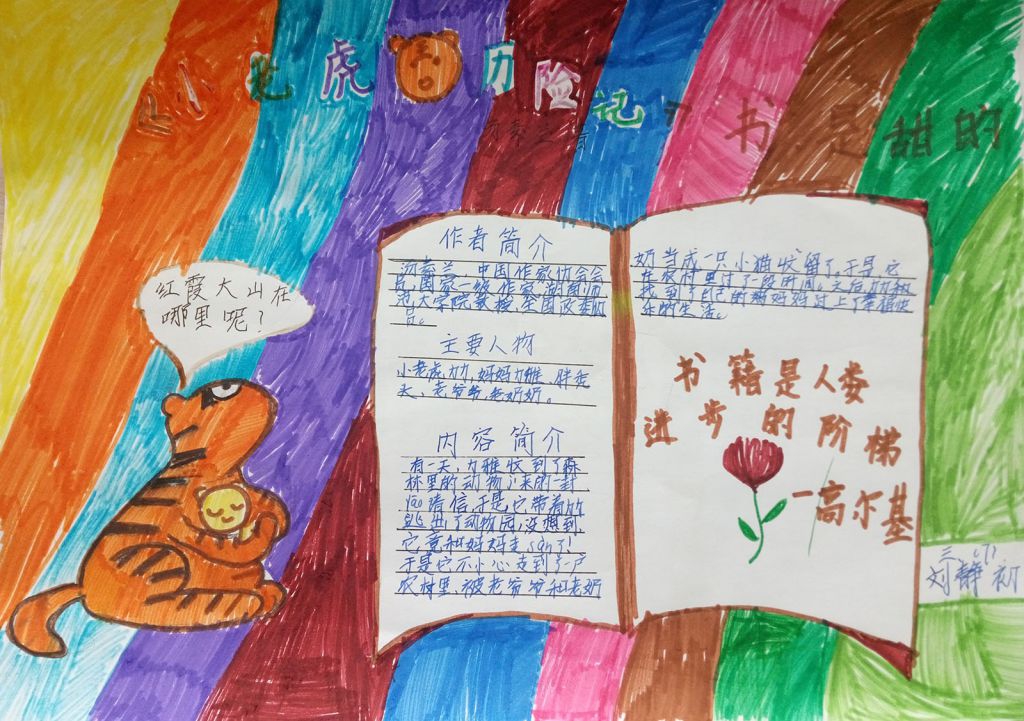 《小老虎历险记》 书是甜的
汤素兰 著
红霞大山在
哪里呢？
作者简介
汤素兰，中国作家协会会
员，国家一级作家湖南师
范大学院教授，全国政委
员。
主要人物
小老虎力力，妈妈力雅，胖老
头，老爷爷，老奶奶。
内容简介
有一天，力雅收到了森
林里的动物心来的一封
信，于是，它带着
逃出了动物园，没想到
它，竟和妈妈走san了！
于是它不小心走到了一户
农村里，被老爷爷和老奶
奶当成一只小猫收留了。于是它
在农村里过了一段时间，
找到了自己的妈妈过上了幸福快
乐的生活。
书籍是人类
进步的阶梯
—高尔基
三、(7)
刘静初